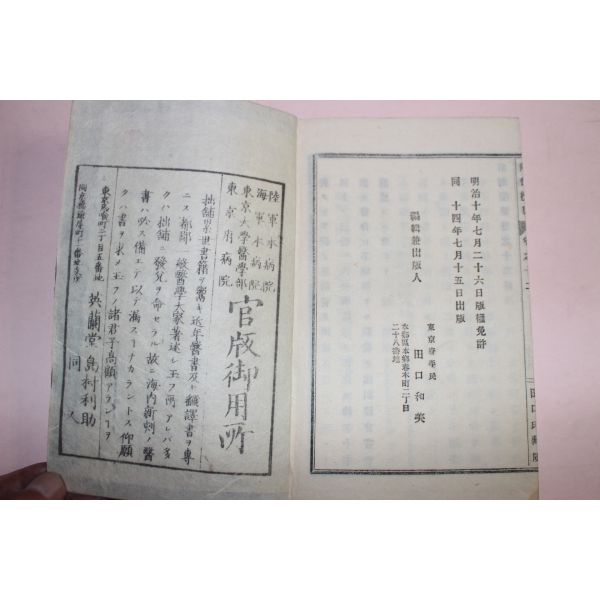 明治十年七月二十六日版權免許
同 十四年七月十五日出版
編輯兼出版人
東京府平民
田口和美
本鄕區本鄕春木町二丁目
二十八番地
陸軍本病院
海軍本病院
東京大學醫學部
東京府病院
官版御用所
拙舖累世書籍ヲ鬻キ近年醫書及ヒ飜譯書ヲ專
ニス都鄙ノ醫學大家著述シ玉フ所アレバ多
クハ拙舖ニ發兌ヲ命セラル故ニ海内新刻ノ醫
書ハ必ス備エテ以テ滿スーナカラントス仰願
クハ書ヲ求メ玉フノ諸君子高顧アランーヲ
東京馬喰町二丁目五番地
英蘭堂島村利助
同人